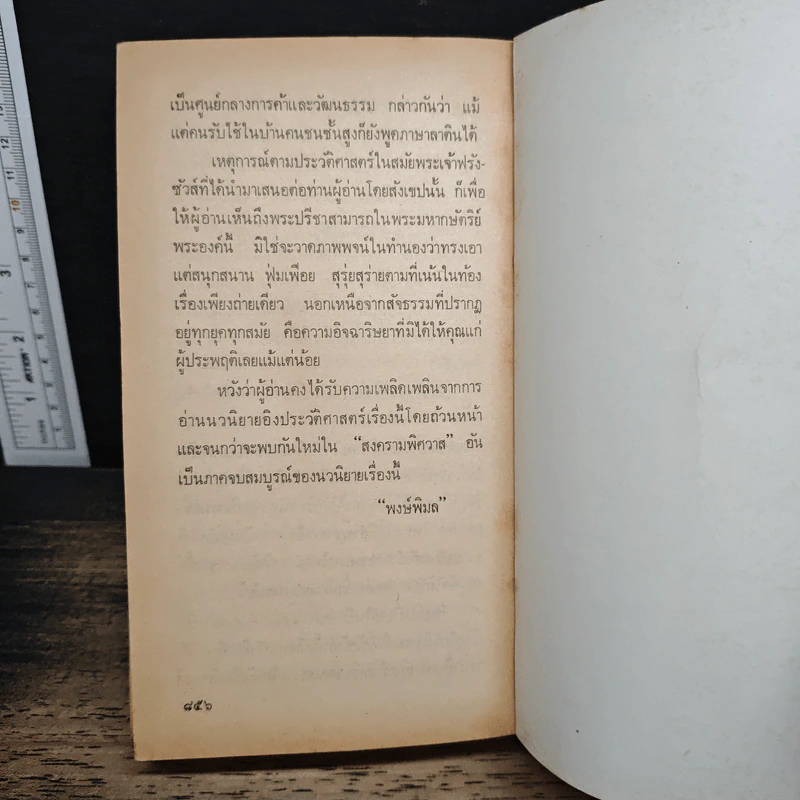 เป็นศูนย์กลางการค้าและวัฒนธรรม กล่าวกันว่า แม้
แต่คนรับใช้ในบ้านคนชนชั้นสูงก็ยังพูดภาษาลาตินได้
เหตุการณ์ตามประวัติศาสตร์ในสมัยพระเจ้าฟรัง-
ซัวส์ที่ได้นำมาเสนอต่อท่านผู้อ่านโดยสังเขปนั้น ก็เพื่อ
ให้ผู้อ่านเห็นถึงพระปรีชาสามารถในพระมหากษัตริย์
พระองค์นี้ มิใช่จะวาดภาพพจน์ในทำนองว่าทรงเอา
แต่สนุกสนาน ฟุ่มเฟือย สุรุ่ยสุร่ายตามที่เน้นในท้อง
เรื่องเพียงถ่ายเดียว นอกเหนือจากสัจธรรมที่ปรากฏ
อยู่ทุกยุคทุกสมัย คือความอิจฉาริษยาที่มิได้ให้คุณแก่
ผู้ประพฤติเลยแม้แต่น้อย
หวังว่าผู้อ่านคงได้รับความเพลิดเพลินจากการ
อ่านนวนิยายอิงประวัติศาสตร์เรื่องนี้โดยถ้วนหน้า
และจนกว่าจะพบกันใหม่ใน “สงครามพิศวาส” อัน
เป็นภาคจบสมบูรณ์ของนวนิยายเรื่องนี้
“พงษ์พิมล”
๘๕๖